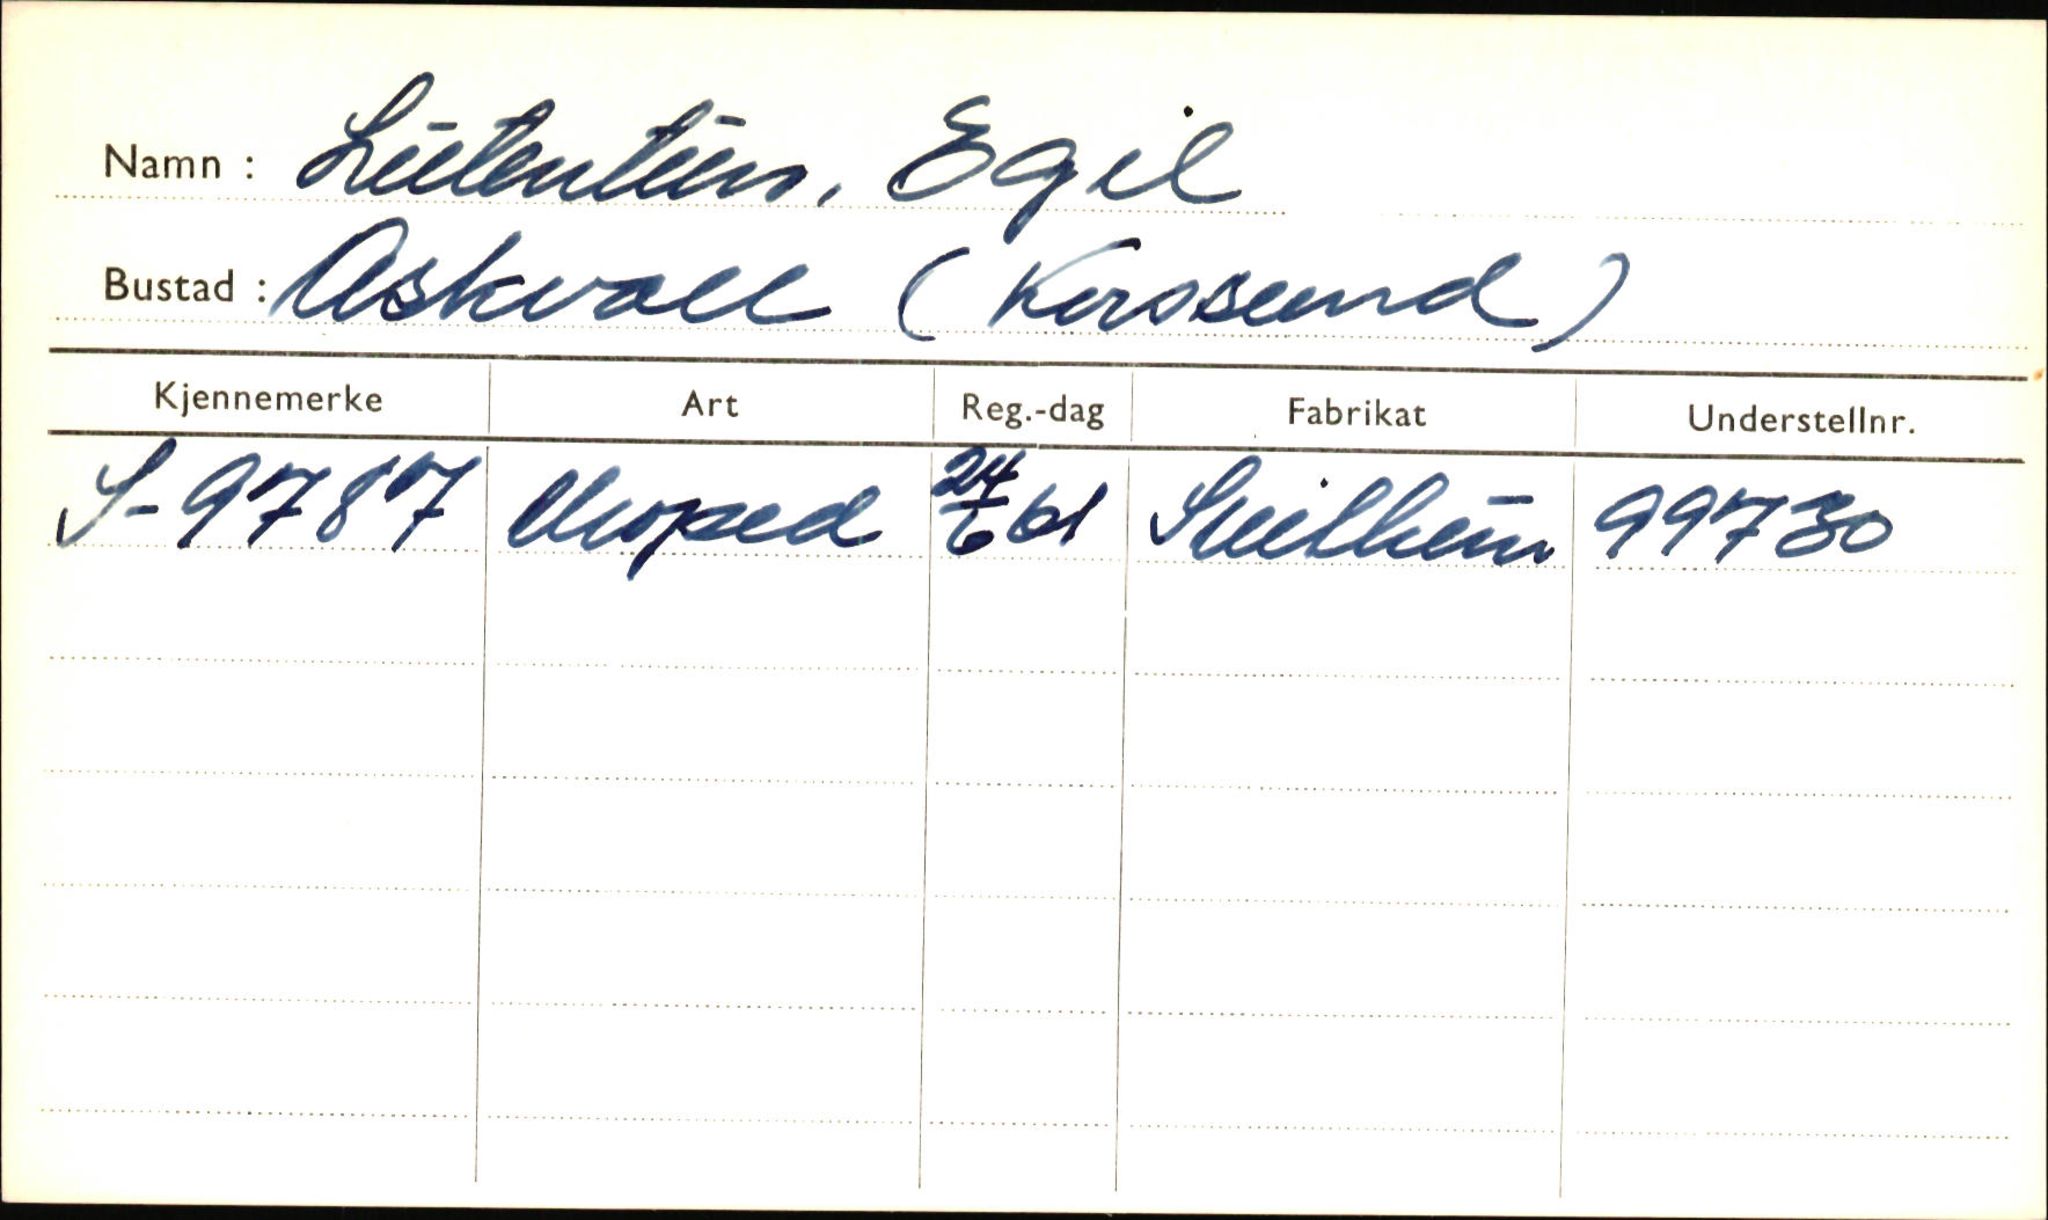 Namn : Lütentün, Egil
Bustad : Askvoll (Korssund)
Kjennemerke Art Reg.-dag Fabrikat Understellnr.
S-9787 Moped 24/6 61 99730